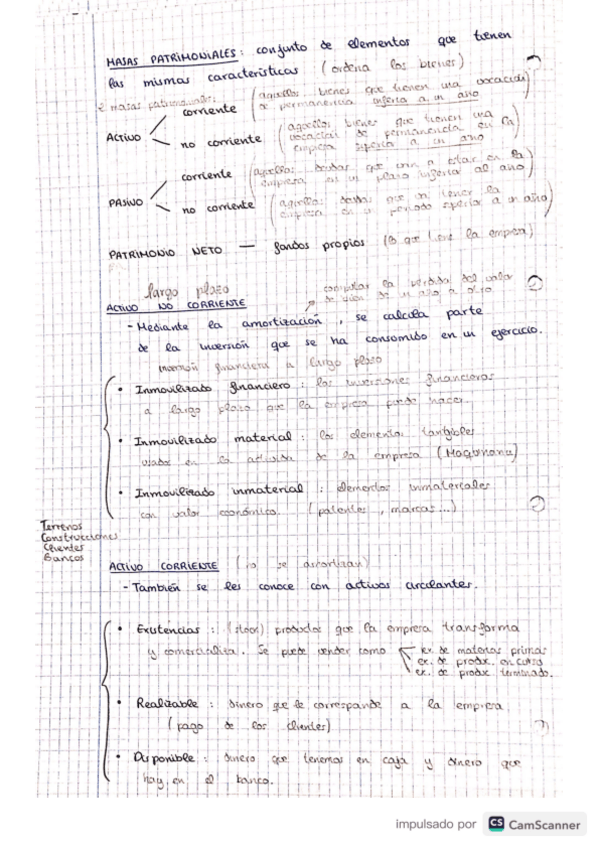 MASAS PATRIMONIALES: conjunto de elementos que tienen
las mismas características (ordena los bienes)
2 masas patrimoniales:
corriente (aquellos bienes que tienen una vocación
de permanencia inferior a un año)
ACTIVO
no corriente (aquellos bienes que tienen una
vocación de permanencia en la
empresa superior a un año)
corriente (aquellas deudas que van a estar en la
empresa en un plazo inferior al año)
PASIVO
no corriente (aquellas deudas que van tener la
empresa en un periodo superior a un año)
PATRIMONIO NETO — fondos propios (lo que tiene la empresa)
largo plazo
computar la pérdida del valor
de un año a otro
ACTIVO NO CORRIENTE
- Mediante la amortización, se calcula parte
de la inversión que se ha consumido en un ejercicio.
inversión financiera a largo plazo
• Inmovilizado financiero: las inversiones financieras
a largo plazo que la empresa puede hacer.
• Inmovilizado material: los elementos tangibles
usados en la actividad de la empresa (Maquinaria)
• Inmovilizado inmaterial: elementos inmateriales
con valor económico. (patentes, marcas...)
Terrenos
Construcciones
Clientes
Bancos
ACTIVO CORRIENTE (no se amortizan)
- También se les conoce con activos circulantes.
• Existencias: (stock) productos que la empresa transforma
y comercializa. Se puede vender como
ex. de materias primas
ex. de produc. en curso
ex. de produc terminado.
• Realizable: dinero que le corresponde a la empresa
(pago de los clientes)
• Disponible: dinero que tenemos en caja y dinero que
hay en el banco.
impulsado por CS CamScanner